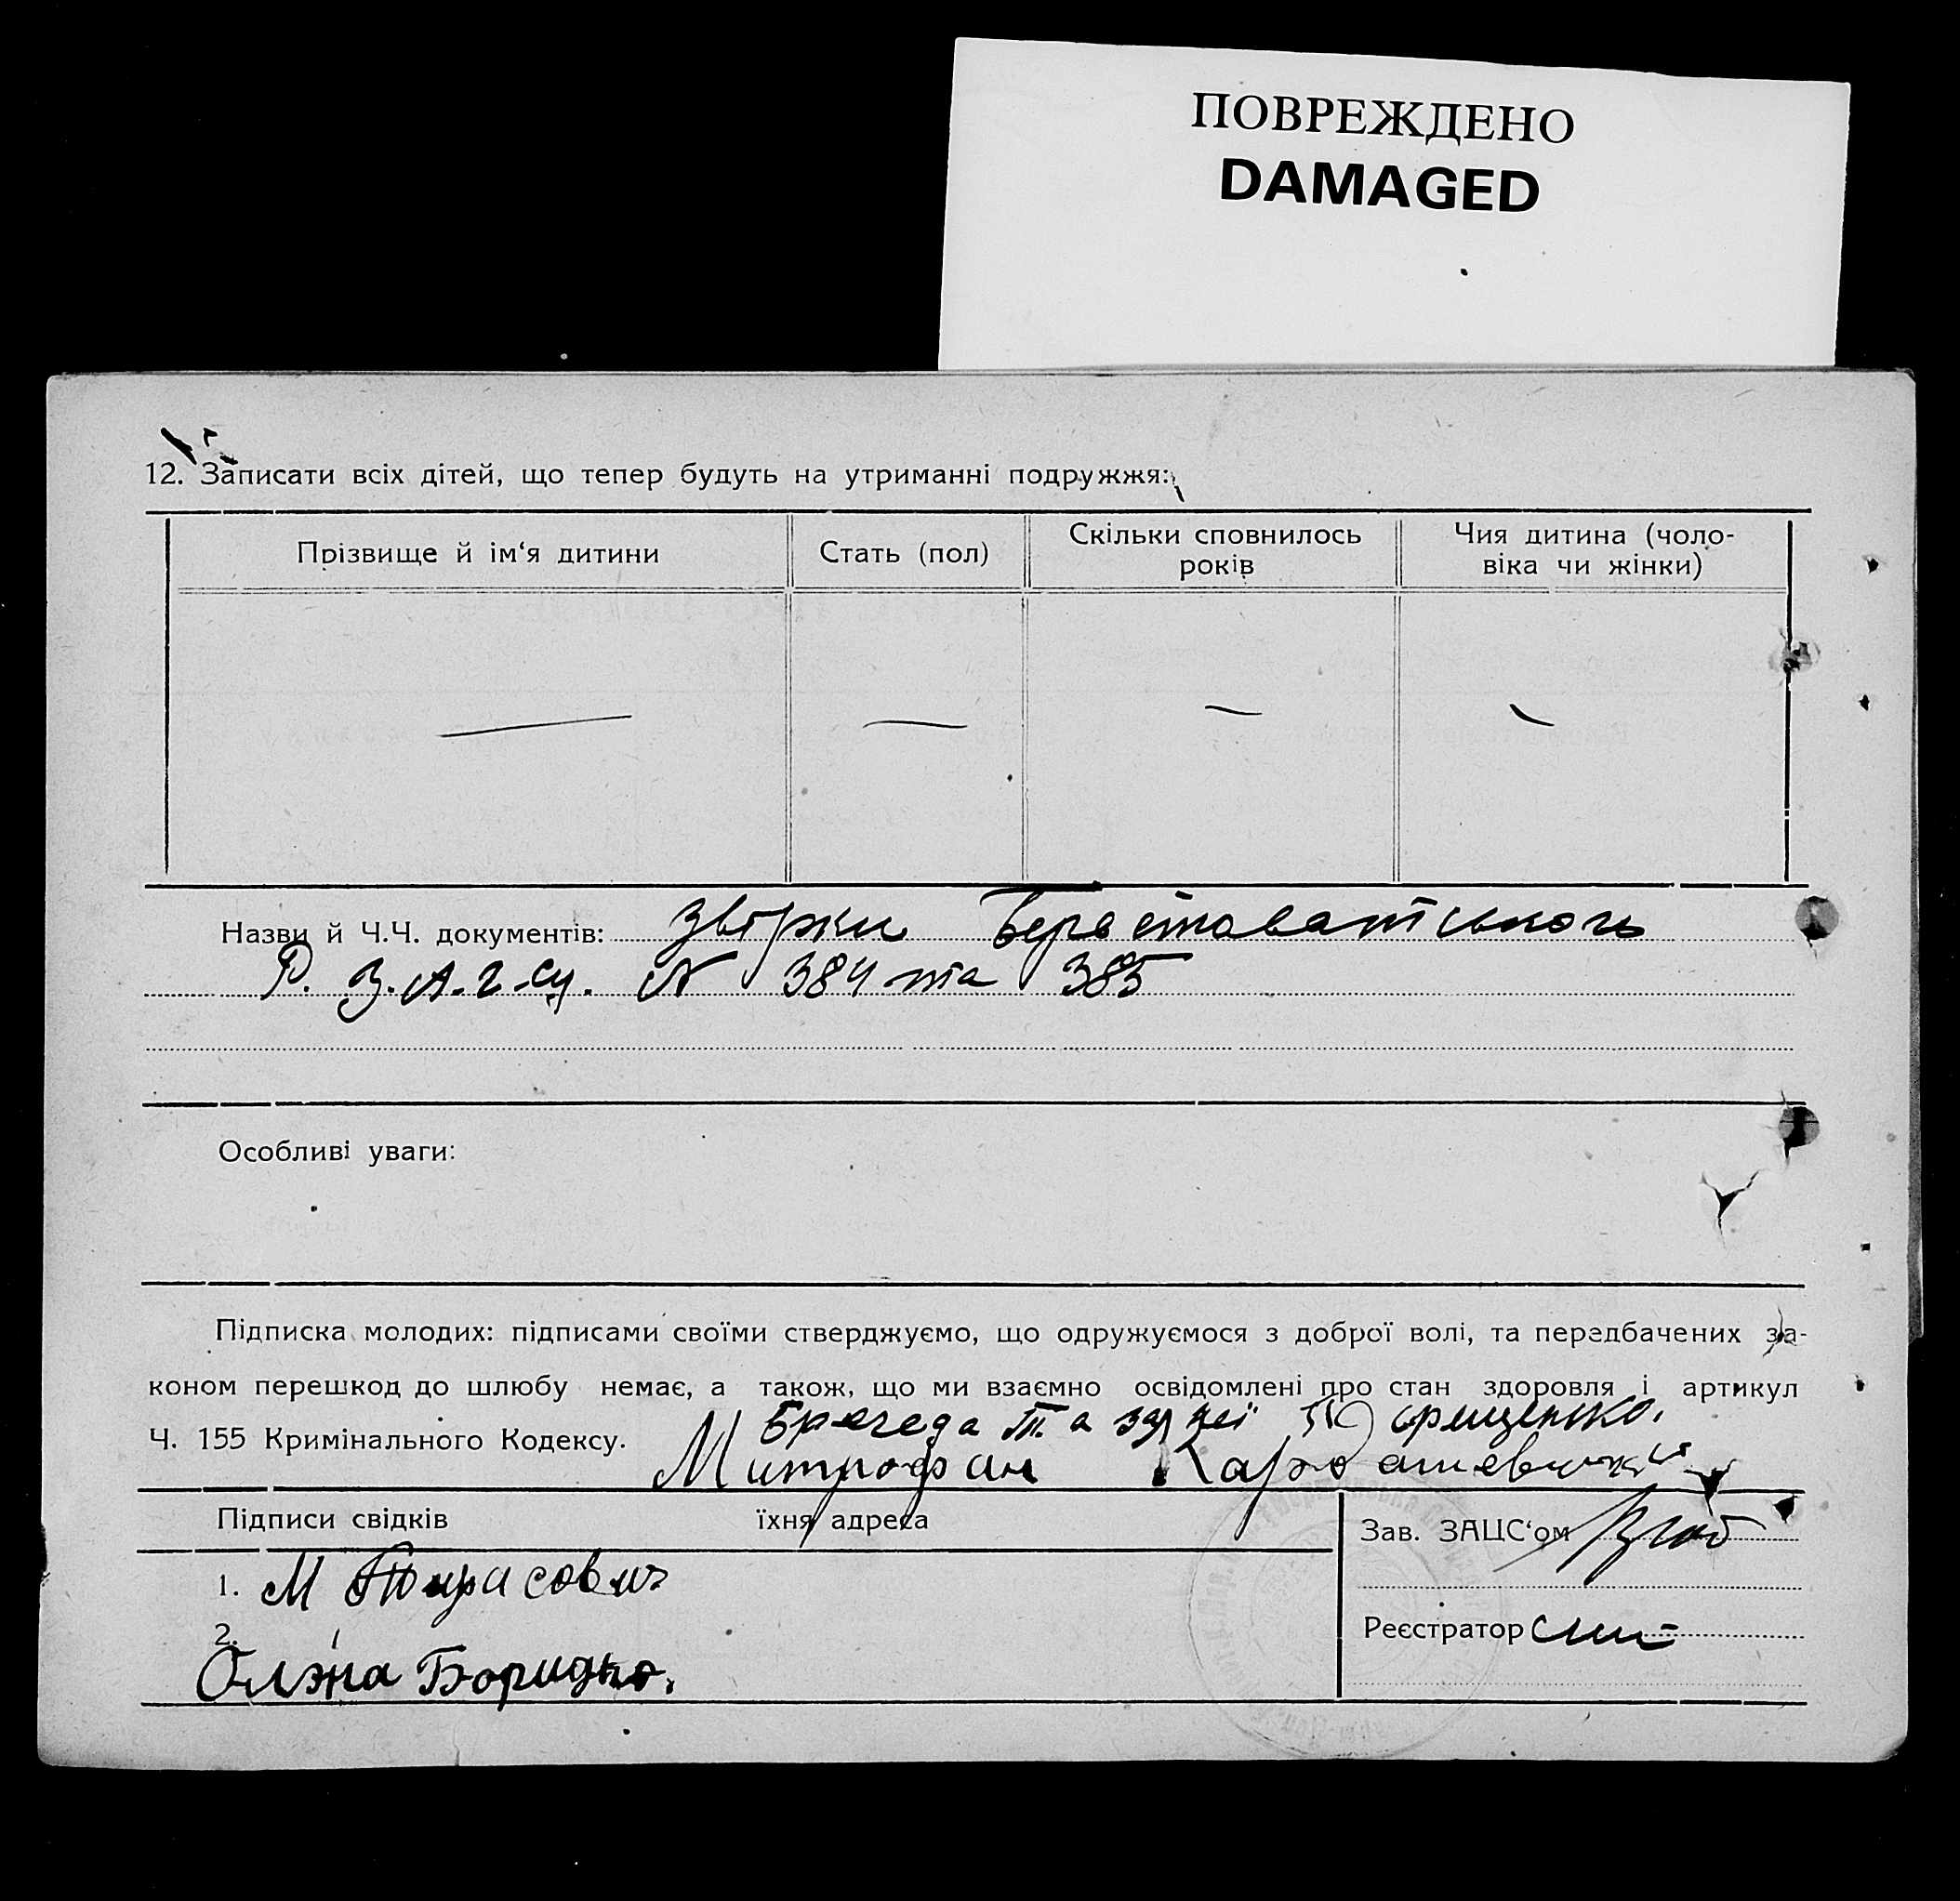 ПОВРЕЖДЕНО
DAMAGED
12. Записати всіх дітей, що тепер будуть на утриманні подружжя:
Прізвище й ім'я дитини
Стать (пол)
Скільки сповнилось
років
Чия дитина (чоло-
віка чи жінки)
Назви й Ч.Ч. документів:
Р. З.А.Г.Су. N 384 та 385
Особливі уваги:
Підписка молодих: підписами своїми стверджуємо, що одружуємося з доброї волі, та передбачених за-
коном перешкод до шлюбу немає, а також, що ми взаємно освідомлені про стан здоровля і артикул
Ч. 155 Кримінального Кодексу.
Митрофан
Підписи свідків їхня адреса
Зав. ЗАЦС'ом
1. М Тарасович
2.
Олэна
Реєстратор